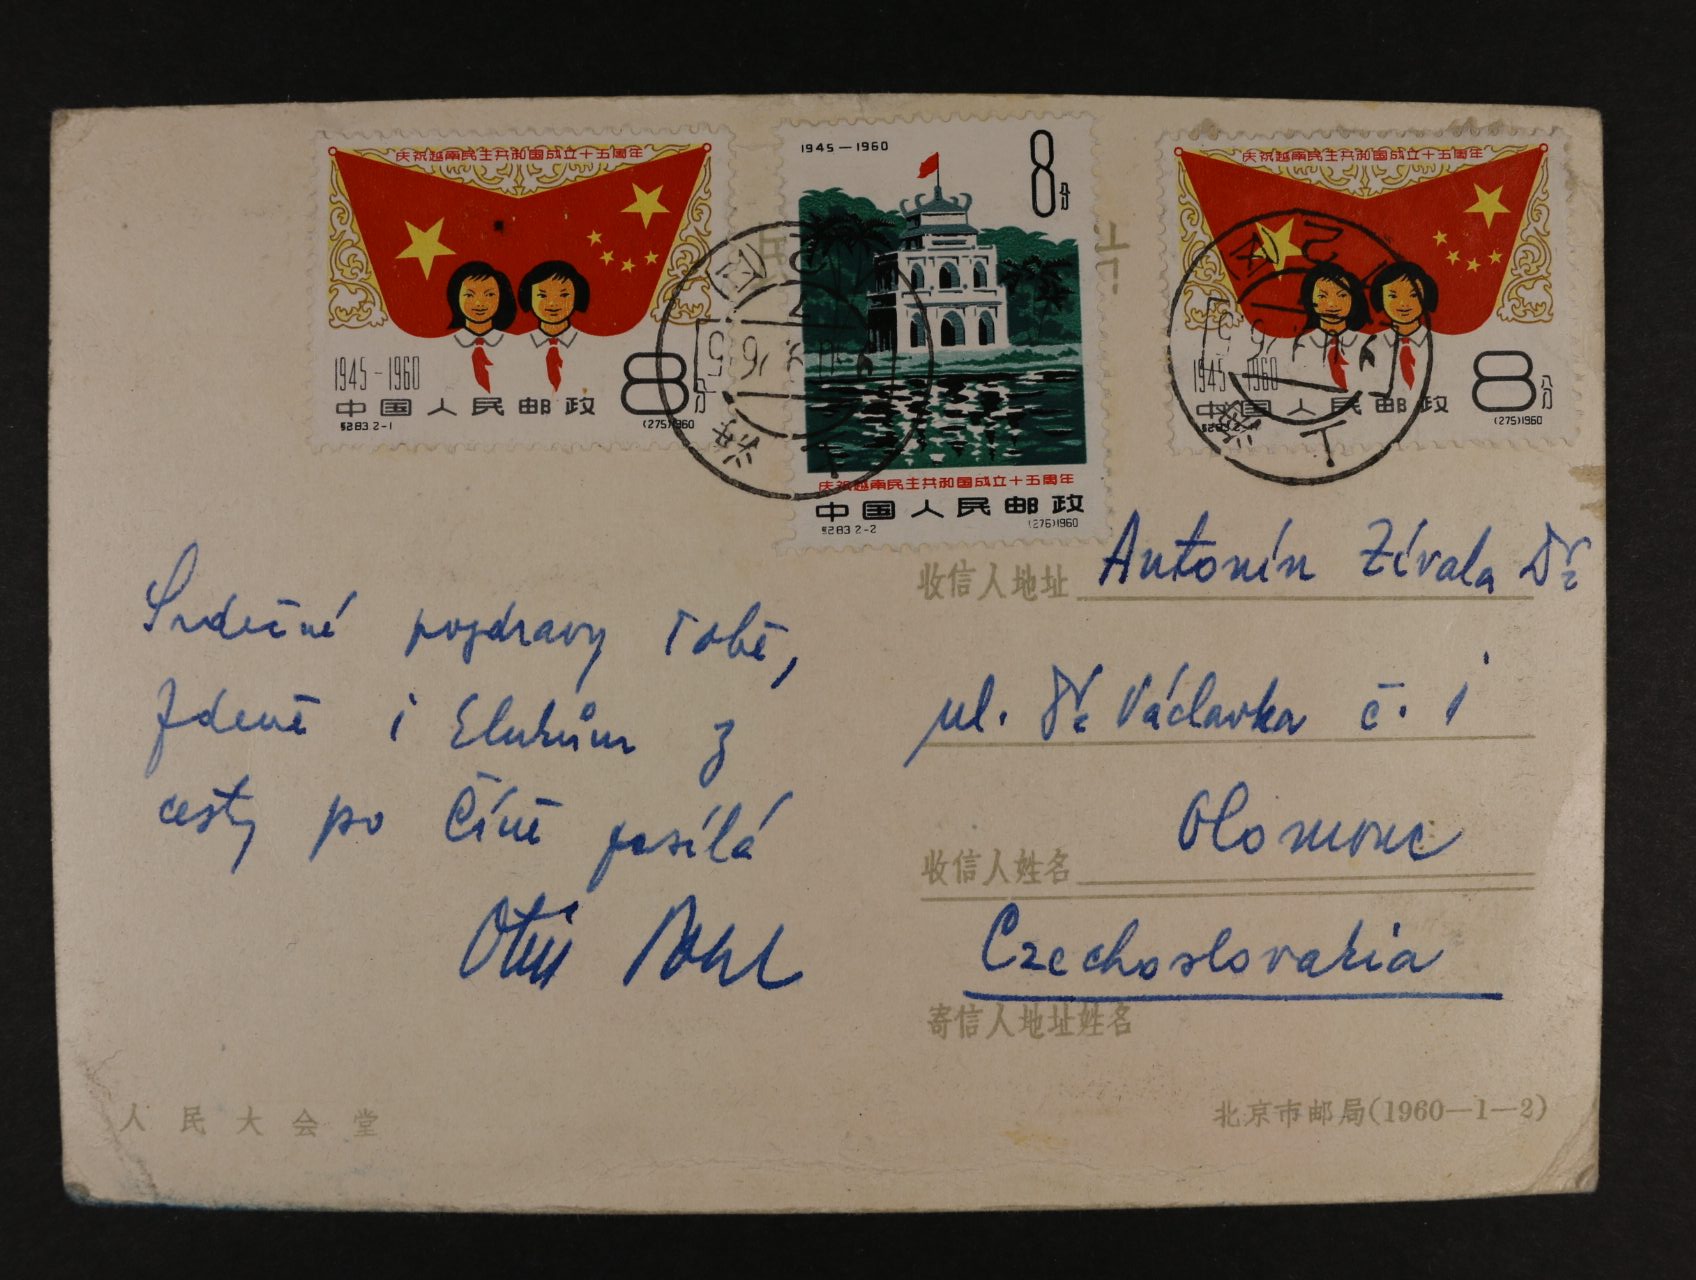 庆祝越南民主共和国成立十五周年
1945-1960
8分
中国人民邮政
纪83.2-1
(275)1960
1945—1960
8分
庆祝越南民主共和国成立十五周年
中国人民邮政
纪83.2-2
(276)1960
庆祝越南民主共和国成立十五周年
1945-1960
8分
中国人民邮政
纪83.2-1
(275)1960
上海
Srdečné pozdravy Tobě,
Zdeně i Elukům z
cesty po Číně posílá
收信人地址 Antonín Zívala Dr
ul. Dr Václavka č. 1
Olomouc
收信人姓名
Czechoslovakia
寄信人地址姓名
人民大会堂
北京市邮局(1960—1—2)